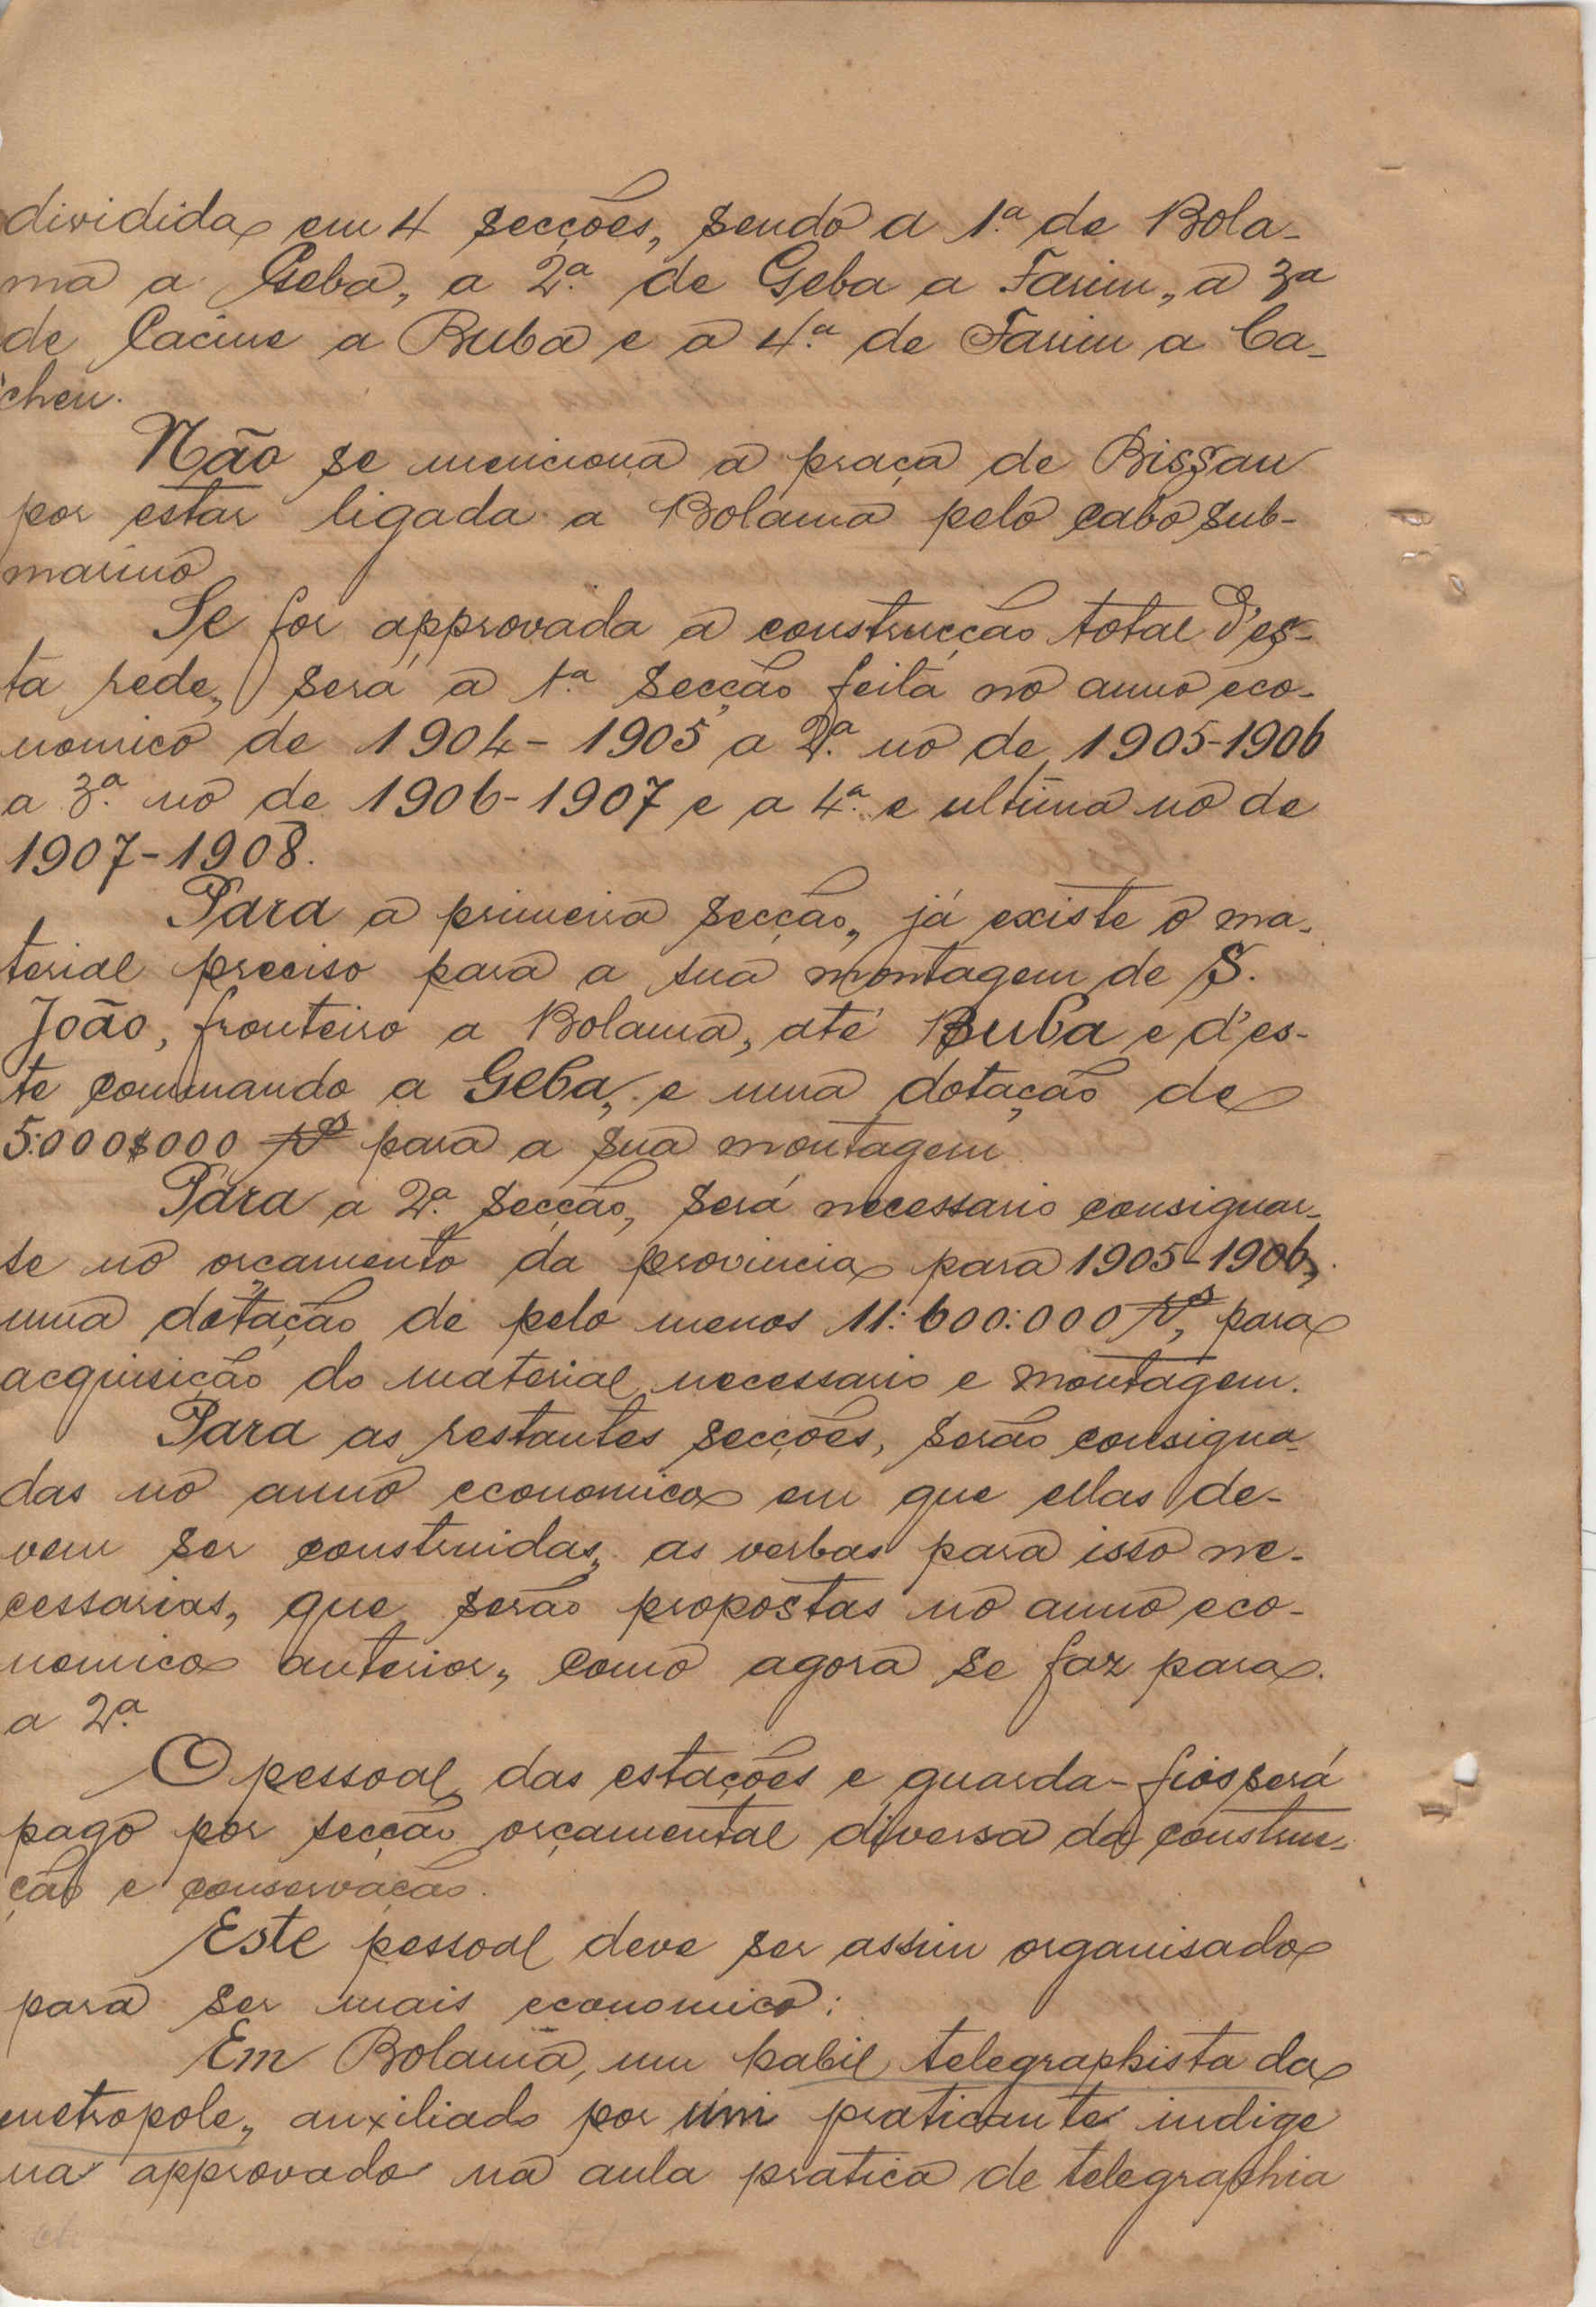 dividida em 4 secções, sendo a 1.ª de Bola-
ma a Geba, a 2.ª de Geba a Farim, a 3ª
de Cacine a Buba e a 4.ª de Farim a Ca-
cheu.
Não se menciona a praça de Bissau
por estar ligada a Bolama pelo cabo sub-
marino
Se for approvada a construcção total d'es-
ta rede, será a 1.ª secção feita no anno eco-
nomico de 1904-1905 a 2.ª no de 1905-1906
a 3.ª no de 1906-1907 e a 4.ª e ultima no de
1907-1908.
Para a primeira secção, já existe o ma-
terial preciso para a sua montagem de S.
João, fronteiro a Bolama, até Buba e d'es-
te commando a Geba, e uma dotação de
5:000$000 rs para a sua montagem
Para a 2.ª secção, será necessario consignar-
se no orçamento da provincia para 1905-1906,
uma dotação de pelo menos 11:600:000 rs, para
acquisição do material necessario e montagem.
Para as restantes secções, serão consigna-
das no anno economico em que ellas de-
vem ser construidas, as verbas para isso ne-
cessarias, que serão propostas no anno eco-
nomico anterior, como agora se faz para
a 2.ª
O pessoal das estações e guarda-fios será
pago por secção orçamental diversa da constru-
ção e conservação.
Este pessoal deve ser assim organisado
para ser mais economico:
Em Bolama, um habil telegraphista da
metropole, auxiliado por um praticante indige
na approvado na aula pratica de telegraphia